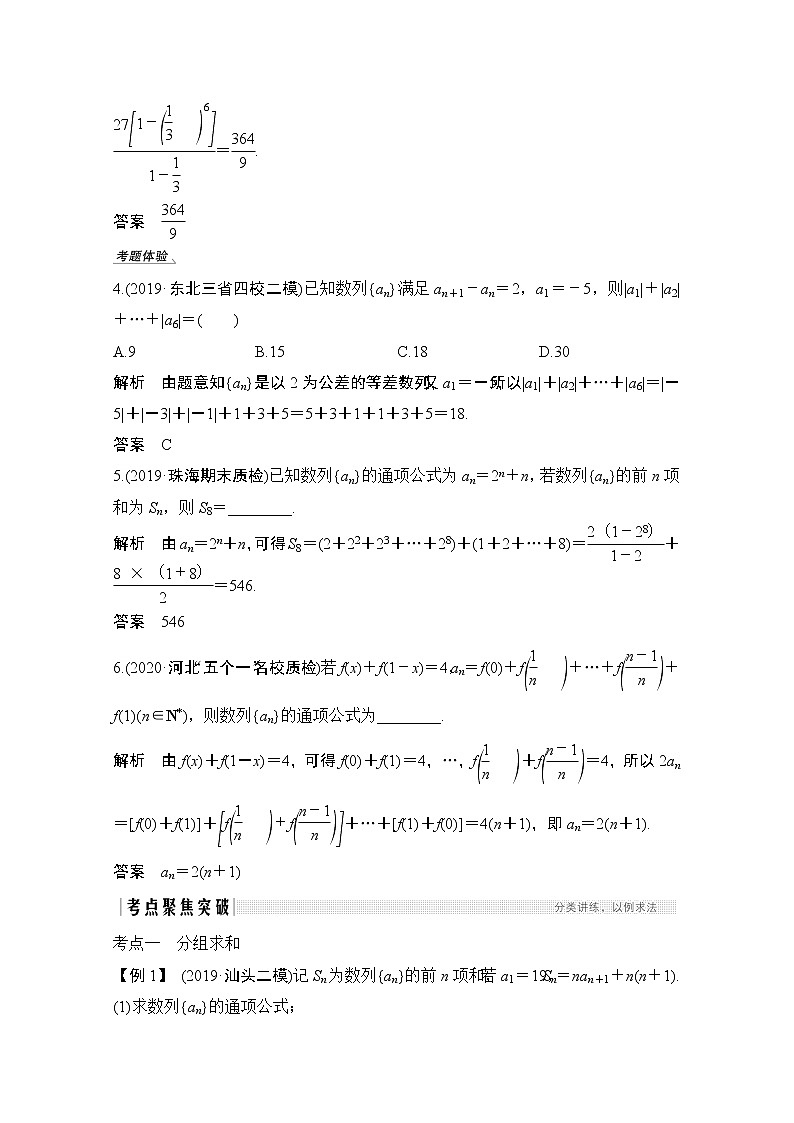 27[1-(1/3)^6]/(1-1/3)=364/9.
答案 364/9
考题体验
4.(2019·东北三省四校二模)已知数列{aₙ}满足 aₙ₊₁-aₙ=2，a₁=-5，则|a₁|+|a₂|
+…+|a₆|=(  )
A.9 B.15 C.18 D.30
解析 由题意知{aₙ}是以 2 为公差的等差数列，又 a₁=-5，所以|a₁|+|a₂|+…+|a₆|=|-
5|+|-3|+|-1|+1+3+5=5+3+1+1+3+5=18.
答案 C
5.(2019·珠海期末质检)已知数列{aₙ}的通项公式为 aₙ=2ⁿ+n，若数列{aₙ}的前 n 项
和为 Sₙ，则 S₈=________.
解析 由 aₙ=2ⁿ+n，可得 S₈=(2+2²+2³+…+2⁸)+(1+2+…+8)=2（1-2⁸）/(1-2)+
8×（1+8）/2=546.
答案 546
6.(2020·河北“五个一”名校质检)若 f(x)+f(1-x)=4，aₙ=f(0)+f(1/n)+…+f((n-1)/n)+
f(1)(n∈N*)，则数列{aₙ}的通项公式为________.
解析 由 f(x)+f(1-x)=4，可得 f(0)+f(1)=4，…，f(1/n)+f((n-1)/n)=4，所以 2aₙ
=[f(0)+f(1)]+[f(1/n)+f((n-1)/n)]+…+[f(1)+f(0)]=4(n+1)，即 aₙ=2(n+1).
答案 aₙ=2(n+1)
考点聚焦突破 分类讲练，以例求法
考点一 分组求和
【例 1】 (2019·汕头二模)记 Sₙ 为数列{aₙ}的前 n 项和，若 a₁=19，Sₙ=naₙ₊₁+n(n+1).
(1)求数列{aₙ}的通项公式；